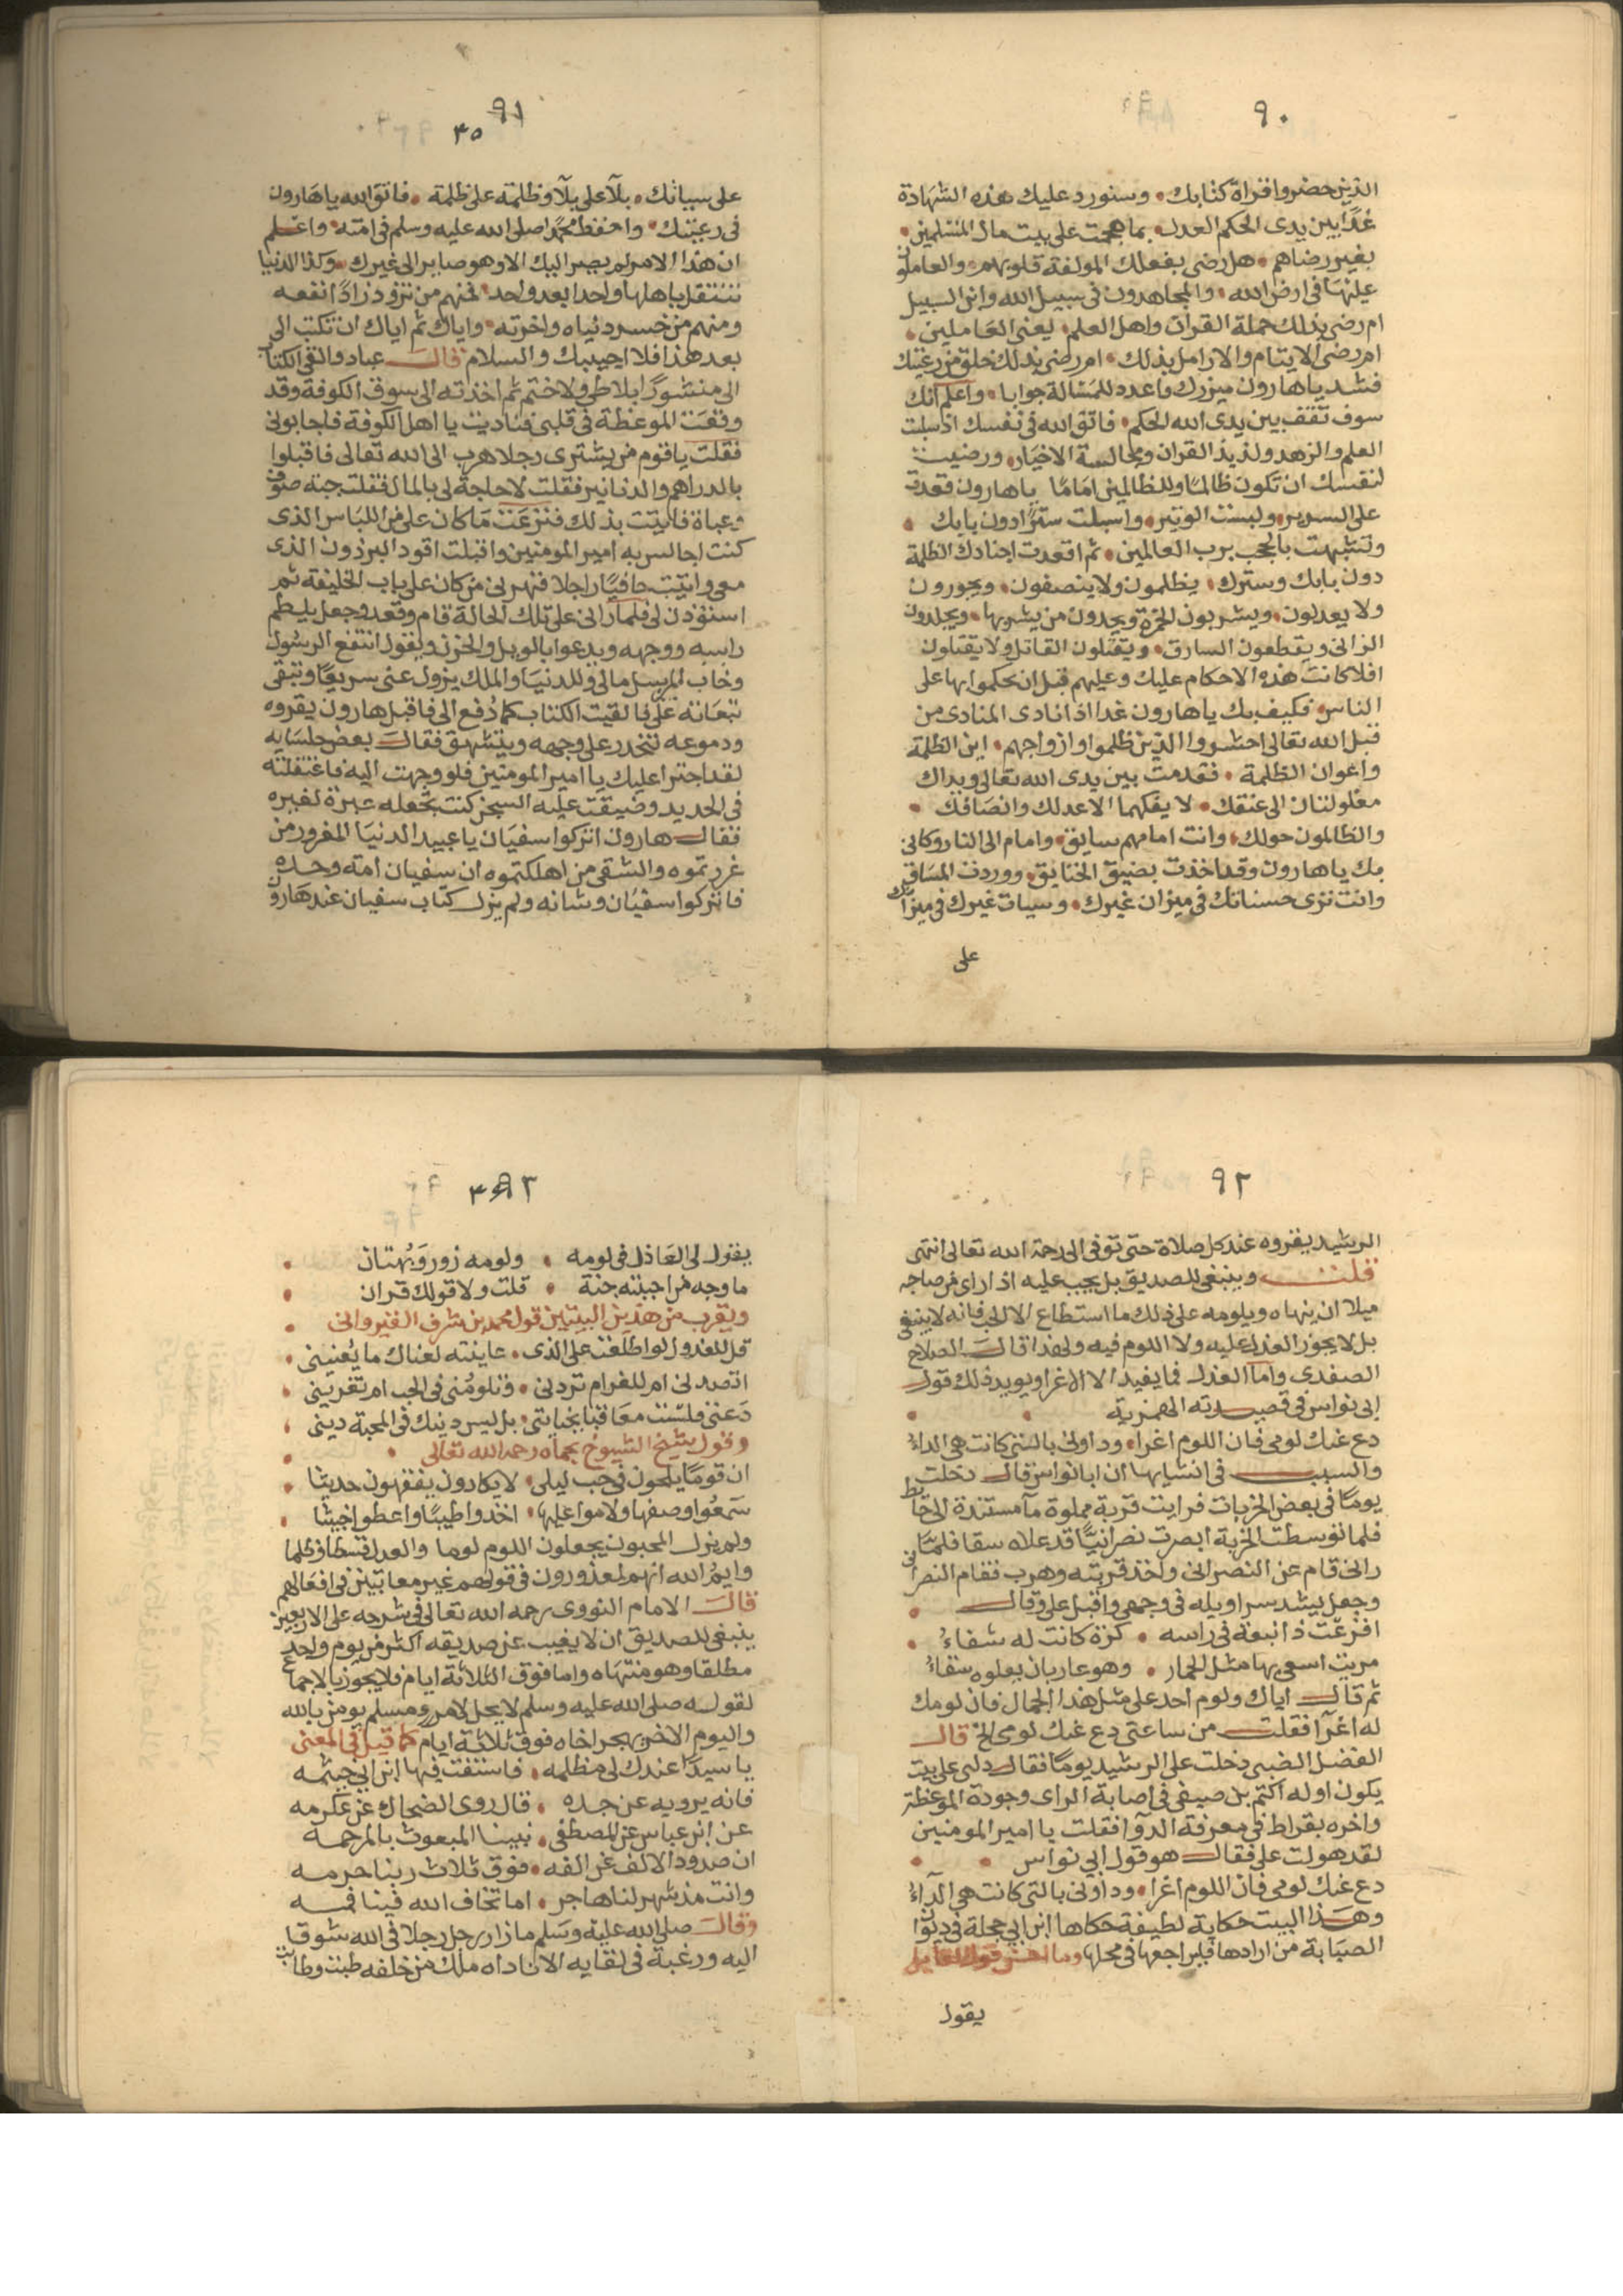 ٩٠
الذين حضروا قراة كتابك • وسنورد عليك هذه الشهادة
غدًا بين يدى الحكم العدل • بما هجمت على بيت مال المسلمين •
بغير رضاهم • هل رضى بفعلك المولفة قلوبهم • والعاملون
عليها فى ارض الله • والمجاهدون فى سبيل الله وابن السبيل
ام رضى بذلك حملة القران واهل العلم • يعنى العاملين •
ام رضى الايتام والارامل بذلك • ام رضى بذلك خلق من رعيتك
فشد ياهارون ميزرك واعدد للمسالة جوابا • واعلم انك
سوف تقف بين يدى الله الحكم • فاتق الله فى نفسك اذ سلبت
العلم والزهد ولذيذ القران ومجالسة الاخيار • ورضيت
لنفسك ان تكون ظالمًا وللظالمين امامًا ياهارون قعدت
على السرير • ولبست الوتير • واسبلت سترًا دون بابك •
وتشبهت بالحجب برب العالمين • ثم اقعدت اجنادك الظلمة
دون بابك وسترك • يظلمون ولا ينصفون • ويجورون
ولا يعدلون • ويشربون الخمرة ويحدون من يشربها • ويجلدون
الزانى ويقطعون السارق • ويقتلون القاتل ولا يقتلون
افلا كانت هذه الاحكام عليك وعليهم قبل ان تحكموا بها على
الناس • فكيف بك ياهارون غدا اذا نادى المنادى من
قبل الله تعالى احشروا الذين ظلموا وازواجهم • اين الظلمة
واعوان الظلمة • فقدمت بين يدى الله تعالى ويداك
مغلولتان الى عنقك • لا يفكهما الا عدلك وانصافك •
والظالمون حولك • وانت امامهم سايق • وامام الى النار وكانى
بك ياهارون وقد اخذت بضيق الخنايق • ووردت المساق
وانت ترى حسناتك فى ميزان غيرك • وسيات غيرك فى ميزانك
على
٩١
٤٥
على سياتك • بلاً على بلاً وظلمة على ظلمة • فاتق الله ياهارون
فى رعيتك • واحفظ محمدًا صلى الله عليه وسلم فى امته • واعلم
ان هذا الامر لم يصر اليك الا وهو صاير الى غيرك • وكذا الدنيا
تنتقل باهلها واحدا بعد واحد • فمنهم من تزود زادًا نفعه
ومنهم من خسر دنياه واخرته • واياك ثم اياك ان تكتب الى
بعد هذا فلا اجيبك والسلام قال عباد والقى الكتاب
الى منشورًا بلا طى ولا ختم ثم اخذته الى سوق الكوفة وقد
وقعت الموعظة فى قلبى فناديت يا اهل الكوفة فاجابونى
فقلت ياقوم من يشترى رجلا هرب الى الله تعالى فاقبلوا
بالدراهم والدنانير فقلت لا حاجة لى بالمال فقلت جبة صوف
وعباة فاتيت بذلك فنزعت ما كان على من اللباس الذى
كنت اجالس به امير المومنين واقبلت اقود البرذون الذى
معى واتيت حافيًا راجلا فنهرنى من كان على باب الخليفة ثم
استؤذن لى فلما رانى على تلك الحالة قام وقعد وجعل يلطم
راسه ووجهه ويدعوا بالويل والحزن ويقول انتفع الرسول
وخاب المرسل مالى وللدنيا والملك يزول عنى سريعًا وتبقى
تبعاته على فالقيت الكتاب كما دُفع الى فاقبل هارون يقروه
ودموعه تتحدر على وجهه ويشهق فقال بعض جلسايه
لقد اجترا عليك يا امير المومنين فلو وجهت اليه فاعتقلته
فى الحديد وضيقت عليه السجن كنت تجعله عبرة لغيره
فقال هارون اتركوا سفيان يا عبيد الدنيا المغرور من
غررتموه والشقى من اهلكتموه ان سفيان امة وحده
فاتركوا سفيان وشانه ولم يزل كتاب سفيان عند هارون
٩٢
الرشيد يقروه عند كل صلاة حتى توفى الى رحمة الله تعالى انتهى
قلت وينبغى للصديق بل يجب عليه اذا راى من صاحبه
ميلا ان ينهاه ويلومه على ذلك ما استطاع الا الحب فانه لا ينبغى
بل لا يجوز العذل عليه ولا اللوم فيه ولهذا قال الصلاح
الصفدى واما العذل فما يفيد الا الاغرا ويويد ذلك قول
ابى نواس فى قصيدته الهمزية •
دع عنك لومى فان اللوم اغراء • وداونى بالتى كانت هى الداءُ
والسبب فى انشايها ان ابا نواس قال دخلت
يومًا فى بعض الخربات فرايت قربة مملوة مآ مستندة الى حايط
فلما توسطت الخربة ابصرت نصرانيًا قد علاه سقا فلما
رانى قام عن النصرانى واخذ قربته وهرب فقام النصرانى
وجعل يشد سراويله فى وجهى واقبل على وقال •
افرغت ذا نبعة فى راسه • كزة كانت له شفاءُ •
مريت اسعى بها مثل الحمار • وهو عاريان يعلوه سقاءُ
ثم قال اياك ولوم احد على مثل هذا الجمال فان لومك
له اغرآ فقلت من ساعتى دع عنك لومى الخ قال
الفضل الضبى دخلت على الرشيد يومًا فقال دلنى على بيت
يكون اوله اكتم بن صيفى فى اصابة الراى وجودة الموعظة
واخره بقراط فى معرفة الدوآ فقلت يا امير المومنين
لقد هولت على فقال هو قول ابى نواس •
دع عنك لومى فان اللوم اغرا • وداونى بالتى كانت هى الدآءُ
وهذا البيت حكاية لطيفة حكاها ابن ابى حجلة فى ديوان
الصبابة من ارادها فليراجعها فى محلها وما احسن قول القايل
يقول
٩٣
يقول لى العاذل فى لومه • ولومه زور وبُهتان •
ما وجه من احببته جنة • قلت ولا قولك قران •
ويقرب من هذين البيتين قول محمد بن شرف القيروانى •
قل للعذول لو اطلعت على الذى • عاينته لعناك ما يُعنينى •
اتصدنى ام للغرام تردنى • وتلومُنى فى الحب ام تغرينى •
دعنى فلست معاقبا بجنايتى • بل ليس دينك فى المحبة دينى •
وقول شيخ الشيوخ بحماه رحمه الله تعالى •
ان قومًا يلحون فى حب ليلى • لا يكادون يفقهون حديثا •
سمعُوا وصفها ولاموا عليها • اخذوا طيبًا واعطوا خبيثا •
ولم يزل المحبون يجعلون اللوم لوما والعدل قسطا وظلما
وايمُ الله انهم لمعذورون فى قولهم غير معاتبين فى افعالهم
قال الامام النووى رحمه الله تعالى فى شرحه على الاربعين
ينبغى للصديق ان لا يغيب عن صديقه اكثر من يوم واحد
مطلقا وهو منتهاه واما فوق الثلاثة ايام فلا يجوز بالاجماع
لقوله صلى الله عليه وسلم لا يحل لامرء ومسلم يومن بالله
واليوم الاخر يهجر اخاه فوق ثلاثة ايام كما قيل فى المعنى
يا سيدًا عندك لى مظلمه • فاستفت فيها ابن ابى خيثمه
فانه يرويه عن جده • قال روى الضحاك عن عكرمه
عن ابن عباس عن المصطفى • نبينا المبعوث بالمرحمه
ان صدود الالف عن الفه • فوق ثلاث ربنا حرمه
وانت مذ شهر لنا هاجر • اما تخاف الله فينا فمه
وقال صلى الله عليه وسلم ما زار رجل رجلا فى الله شوقا
اليه ورغبة فى لقايه الا ناداه ملك من خلفه طبت وطابت